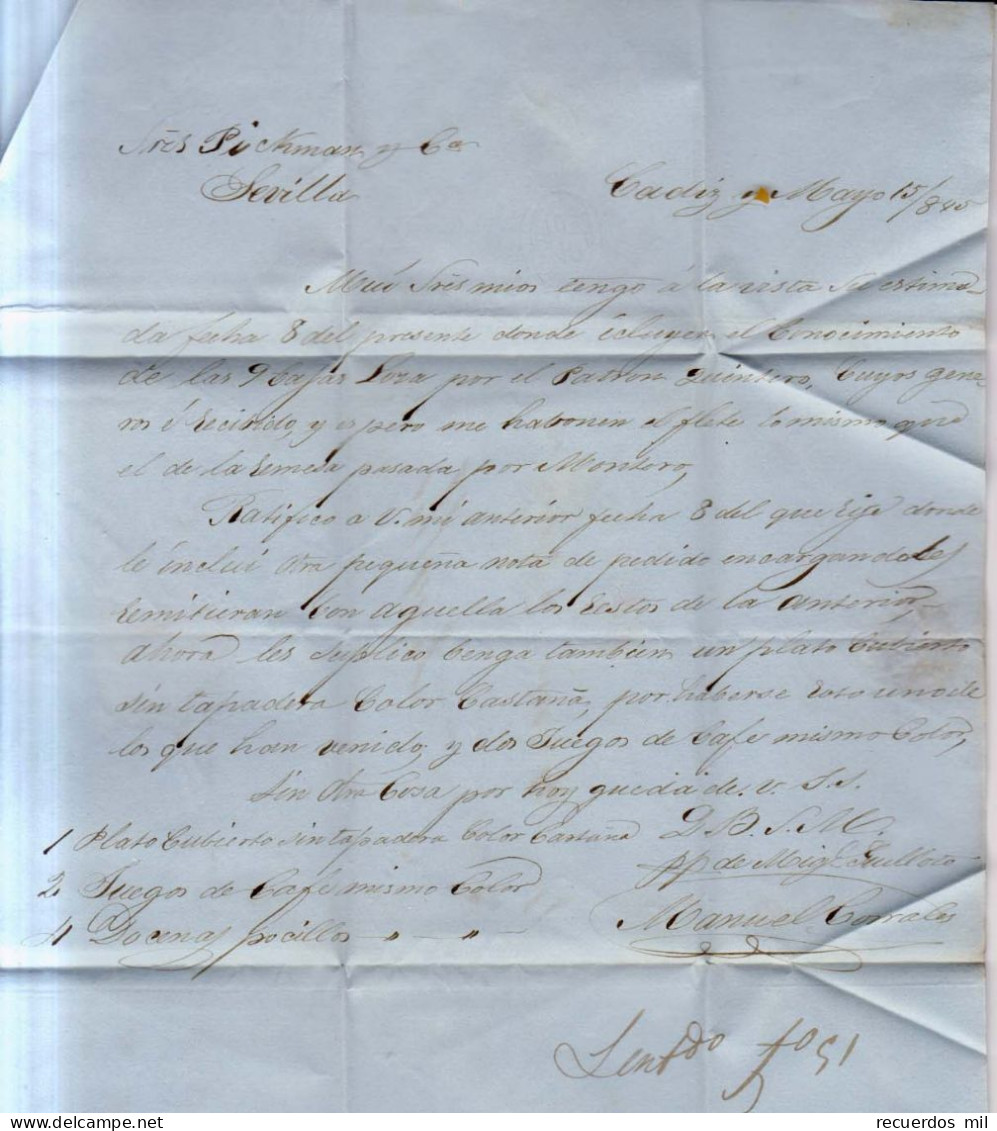 Sres Pickman y Ca
Sevilla
Cadiz y Mayo 15/845
Mui Sres mios tengo á la vista su estima-
da fecha 8 del presente donde icluyen el Conocimiento
de las 9 Cajas Loza por el Patron Quintero, Cuyos gene-
ros é Recivido, y espero me habonen el flete lo mismo que
el de la Remesa pasada por Montero,
Ratifico a V. mi anterior fecha 8 del que Rije donde
le incluí otra pequeña nota de pedido encargandoles
Remitieran con aquella los Restos de la anterior,
ahora les suplico benga tambien un plato Cubierto
sin tapadera Color Castaña, por haberse Roto uno de
los que han venido, y dos Juegos de Café mismo Color,
Sin otra Cosa por hoy queda de V. S. S.
1 Plato Cubierto sin tapadera Color Castaña D. B. S. M.
2 Juegos de Café mismo Color pp de Migl
4 Docenas pocillos " — " — Manuel Corrales
Sentdo fo 51
recuerdos mil